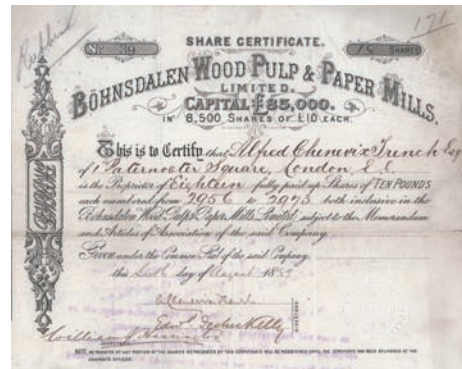 171
SHARE CERTIFICATE.
No. 39
18 SHARES
BÖHNSDALEN WOOD PULP & PAPER MILLS.
LIMITED.
CAPITAL £85,000.
IN 8,500 SHARES OF £10 EACH.
This is to Certify that Alfred Chenevix Trench Esq
of 1 Paternoster Square, London, E.C.
is the Proprietor of Eighteen fully paid up Shares of TEN POUNDS
each numbered from 2956 to 2973 both inclusive in the
Böhnsdalen Wood Pulp & Paper Mills, Limited, subject to the Memorandum
and Articles of Association of the said Company.
Given under the Common Seal of the said Company,
this day of August 18
DIRECTORS
NOTE. NO TRANSFER OF ANY PORTION OF THE SHARES REPRESENTED BY THIS CERTIFICATE WILL BE REGISTERED UNTIL THE CERTIFICATE HAS BEEN DELIVERED AT THE
COMPANY'S OFFICES.